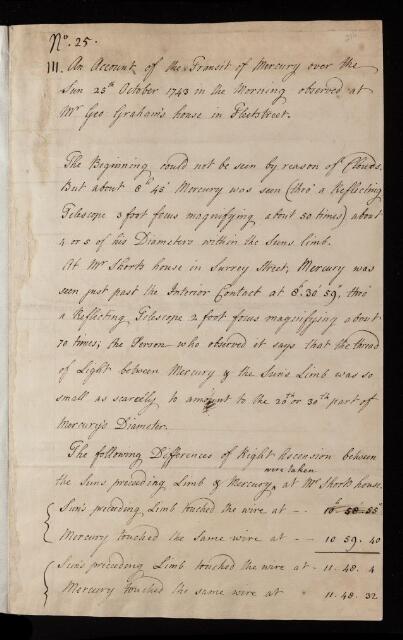 No. 25.
III. An Account of the Transit of Mercury over the
Sun 25th October 1743 in the Morning observed at
Mr Geo Graham's house in Fleetstreet.
The Beginning could not be seen by reason of Clouds.
But about 8h 45' Mercury was seen (thro' a Reflecting
Telescope 3 foot focus magnifying about 50 times) about
4 or 5 of his Diameters within the Suns limb.
At Mr Shorts house in Surrey Street, Mercury was
seen just past the Interior Contact at 8h. 30' 59", thro'
a Reflecting Telescope 2 foot focus magnifying about
70 times; the Person who observed it says that the thread
of Light between Mercury & the Suns Limb was so
small as scarcely to amount to the 20th or 30th part of
Mercury's Diameter.
The following Differences of Right Ascension between
the Suns preceeding Limb & Mercury were taken at Mr Shorts house.
Suns preceeding Limb touched the wire at - - 10h 58' 55"
Mercury touched the same wire at - - 10 59. 40
Suns preceeding Limb touched the wire at - 11. 48. 4
Mercury touched the same wire at 11. 48. 32